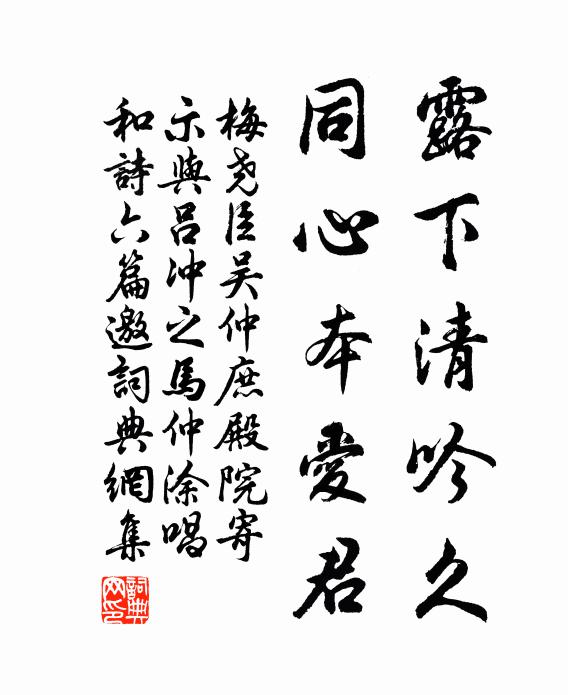 露下清吟久
同心本愛君
梅尧臣吴仲庶殿院寄
示與吕冲之馬仲涂唱
和詩六篇邀詞典網集
詞典
网印